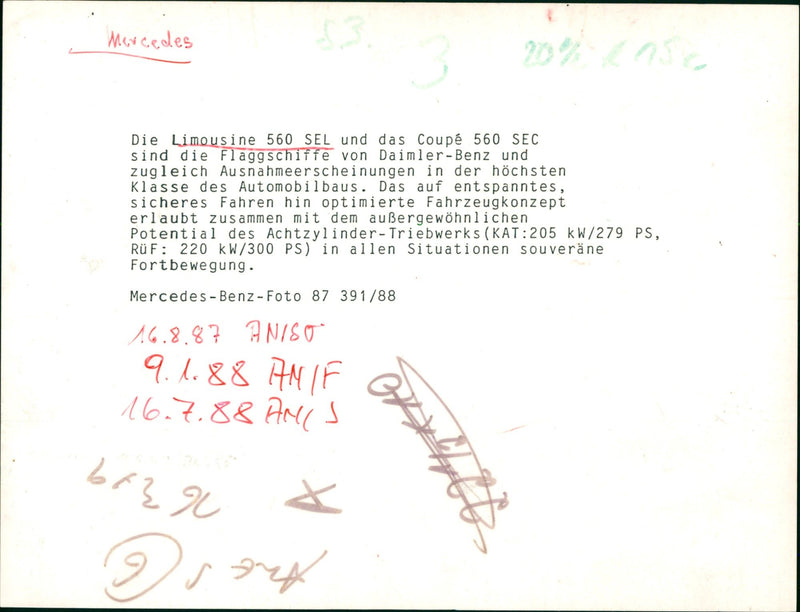 Mercedes
3
20%
Die Limousine 560 SEL und das Coupé 560 SEC
sind die Flaggschiffe von Daimler-Benz und
zugleich Ausnahmeerscheinungen in der höchsten
Klasse des Automobilbaus. Das auf entspanntes,
sicheres Fahren hin optimierte Fahrzeugkonzept
erlaubt zusammen mit dem außergewöhnlichen
Potential des Achtzylinder-Triebwerks(KAT:205 kW/279 PS,
RüF: 220 kW/300 PS) in allen Situationen souveräne
Fortbewegung.
Mercedes-Benz-Foto 87 391/88
16.8.87
9.1.88 AM/F
16.7.88